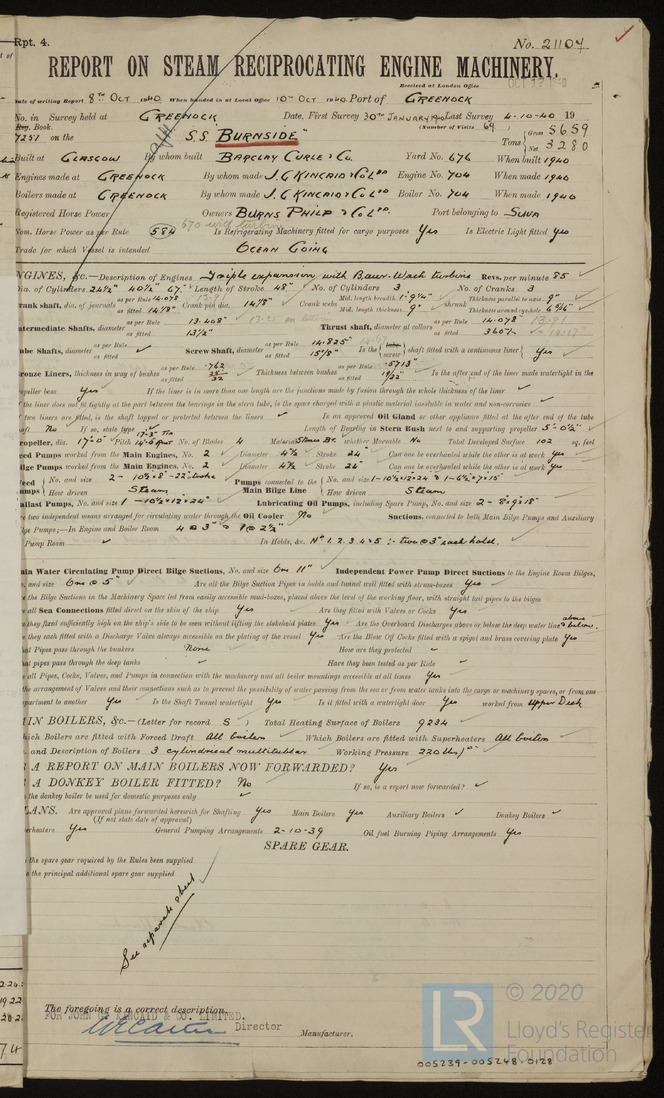 Rpt. 4.
No. 21107
REPORT ON STEAM RECIPROCATING ENGINE MACHINERY.
Received at London Office
Date of writing Report 8TH OCT 1940. When handed in at Local Office 10TH OCT 1940. Port of GREENOCK
No. in Survey held at GREENOCK Date, First Survey 30TH JANUARY 1940 Last Survey 4-10-40 19
Reg. Book. (Number of Visits 69)
7251 on the S.S. "BURNSIDE" Tons Gross 5659
Net 3280
Built at GLASGOW By whom built BARCLAY CURLE & Co. Yard No. 676 When built 1940
Engines made at GREENOCK By whom made J. G. KINCAID & Co LTD Engine No. 704 When made 1940
Boilers made at GREENOCK By whom made J. G. KINCAID & Co LTD Boiler No. 704 When made 1940
Registered Horse Power Owners BURNS PHILP & Co LTD. Port belonging to SUVA
670 with turbine
Nom. Horse Power as per Rule 584 Is Refrigerating Machinery fitted for cargo purposes Yes Is Electric Light fitted Yes
Trade for which Vessel is intended OCEAN GOING
ENGINES, &c.—Description of Engines Triple expansion with Baur-Wach turbine Revs. per minute 85
Dia. of Cylinders 24½" 40½" 67" Length of Stroke 48" No. of Cylinders 3 No. of Cranks 3
Crank shaft, dia. of journals as per Rule 14.078 as fitted 14⅛" Crank pin dia. 14⅛" Crank webs Mid. length breadth 1'-9¼" Mid. length thickness 9" shrunk Thickness parallel to axis 9" Thickness around eye-hole
Intermediate Shafts, diameter as per Rule 13.408" as fitted 13½" Thrust shaft, diameter at collars as per Rule 14.078" as fitted
Tube Shafts, diameter as per Rule as fitted Screw Shaft, diameter as per Rule 14.825" as fitted 15⅛" Is the screw shaft fitted with a continuous liner Yes
Bronze Liners, thickness in way of bushes as per Rule .762 as fitted Thickness between bushes as per Rule .5713" as fitted 19/32" Is the after end of the liner made watertight in the
propeller boss Yes If the liner is in more than one length are the junctions made by fusion through the whole thickness of the liner
If the liner does not fit tightly at the part between the bearings in the stern tube, is the space charged with a plastic material insoluble in water and non-corrosive
If two liners are fitted, is the shaft lapped or protected between the liners Is an approved Oil Gland or other appliance fitted at the after end of the tube
shaft No If so, state type Length of Bearing in Stern Bush next to and supporting propeller 5'-0½"
Propeller, dia. 17'-0" Pitch No. of Blades 4 Material Bronze whether Moveable No Total Developed Surface 102 sq. feet
Feed Pumps worked from the Main Engines, No. 2 Diameter 4½ Stroke 24" Can one be overhauled while the other is at work Yes
Bilge Pumps worked from the Main Engines, No. 2 Diameter 4½ Stroke 24" Can one be overhauled while the other is at work Yes
Feed Pumps No. and size 2- 10½×8"-22" stroke How driven Steam Pumps connected to the Main Bilge Line No. and size 1-10½×12×24 1-6½×7×15" How driven Steam
Ballast Pumps, No. and size 1-10½"×12×24" Lubricating Oil Pumps, including Spare Pump, No. and size 2-8×9×18"
Are two independent means arranged for circulating water through the Oil Cooler No Suctions, connected to both Main Bilge Pumps and Auxiliary
Bilge Pumps;—In Engine and Boiler Room 4 @ 3"
Pump Room In Holds, &c. Nos 1. 2. 3. 4 & 5 :- two @ 3" each hold.
Main Water Circulating Pump Direct Bilge Suctions, No. and size One 11" Independent Power Pump Direct Suctions to the Engine Room Bilges,
No. and size One @ 5" Are all the Bilge Suction Pipes in holds and tunnel well fitted with strum-boxes Yes
Are the Bilge Suctions in the Machinery Space led from easily accessible mud-boxes, placed above the level of the working floor, with straight tail pipes to the bilges
Are all Sea Connections fitted direct on the skin of the ship Yes Are they fitted with Valves or Cocks Yes
Are they fixed sufficiently high on the ship's side to be seen without lifting the stokehold plates Yes Are the Overboard Discharges above or below the deep water line above & below.
Are they each fitted with a Discharge Valve always accessible on the plating of the vessel Yes Are the Blow Off Cocks fitted with a spigot and brass covering plate Yes
What Pipes pass through the bunkers None How are they protected
What pipes pass through the deep tanks Have they been tested as per Rule
Are all Pipes, Cocks, Valves, and Pumps in connection with the machinery and all boiler mountings accessible at all times Yes
Is the arrangement of Valves and their connections such as to prevent the possibility of water passing from the sea or from water tanks into the cargo or machinery spaces, or from one
compartment to another Yes Is the Shaft Tunnel watertight Yes Is it fitted with a watertight door Yes worked from Upper Deck
MAIN BOILERS, &c.—(Letter for record S) Total Heating Surface of Boilers 9234
Which Boilers are fitted with Forced Draft All boilers Which Boilers are fitted with Superheaters All boilers
No. and Description of Boilers 3 cylindrical multitubular Working Pressure 220 lbs/□"
IS A REPORT ON MAIN BOILERS NOW FORWARDED? Yes
IS A DONKEY BOILER FITTED? No If so, is a report now forwarded?
Is the donkey boiler be used for domestic purposes only
PLANS. Are approved plans forwarded herewith for Shafting Yes Main Boilers Yes Auxiliary Boilers Donkey Boilers
(If not state date of approval)
Superheaters Yes General Pumping Arrangements 2-10-39 Oil fuel Burning Piping Arrangements Yes
SPARE GEAR.
Has the spare gear required by the Rules been supplied
State the principal additional spare gear supplied
See separate sheet
The foregoing is a correct description.
FOR JOHN G. KINCAID & CO. LIMITED.
Director
Manufacturer.
© 2020
LR
Lloyd's Register
Foundation
005239-005248-0128